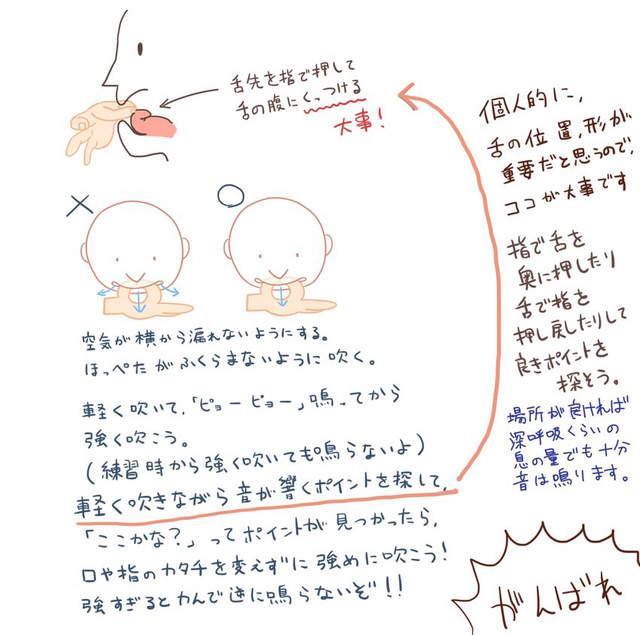 舌先を指で押して
舌の腹にくっつける
大事!
×
○
空気が横から漏れないようにする。
ほっぺたがふくらまないように吹く。
軽く吹いて、「ピョーピョー」鳴ってから
強く吹こう。
(練習時から強く吹いても鳴らないよ)
軽く吹きながら音が響くポイントを探して、
「ここかな?」ってポイントが見つかったら、
口や指のカタチを変えずに強めに吹こう!
強すぎると力んで逆に鳴らないぞ!!
個人的に、
舌の位置、形が
重要だと思うので、
ココが大事です
指で舌を
奥に押したり
舌で指を
押し戻したりして
良きポイントを
探そう。
場所が良ければ
深呼吸くらいの
息の量でも十分
音は鳴ります。
がんばれ